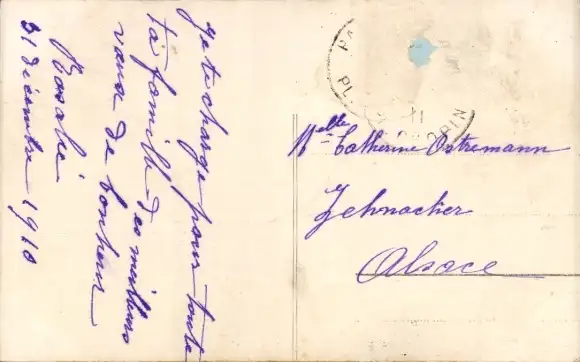 je te charge pour toute
ta famille des meilleurs
vœux de bonheur
Rosalie
31 décembre 1910
Melle Catherine Ostremann
Zehnacker
Alsace